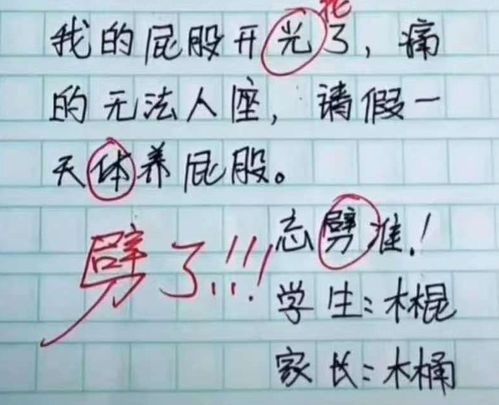 花
我的屁股开光了，痛
的无法人座，请假一
天体养屁股。
忘劈准！
劈了!!!
学生：木棍
家长：木桶